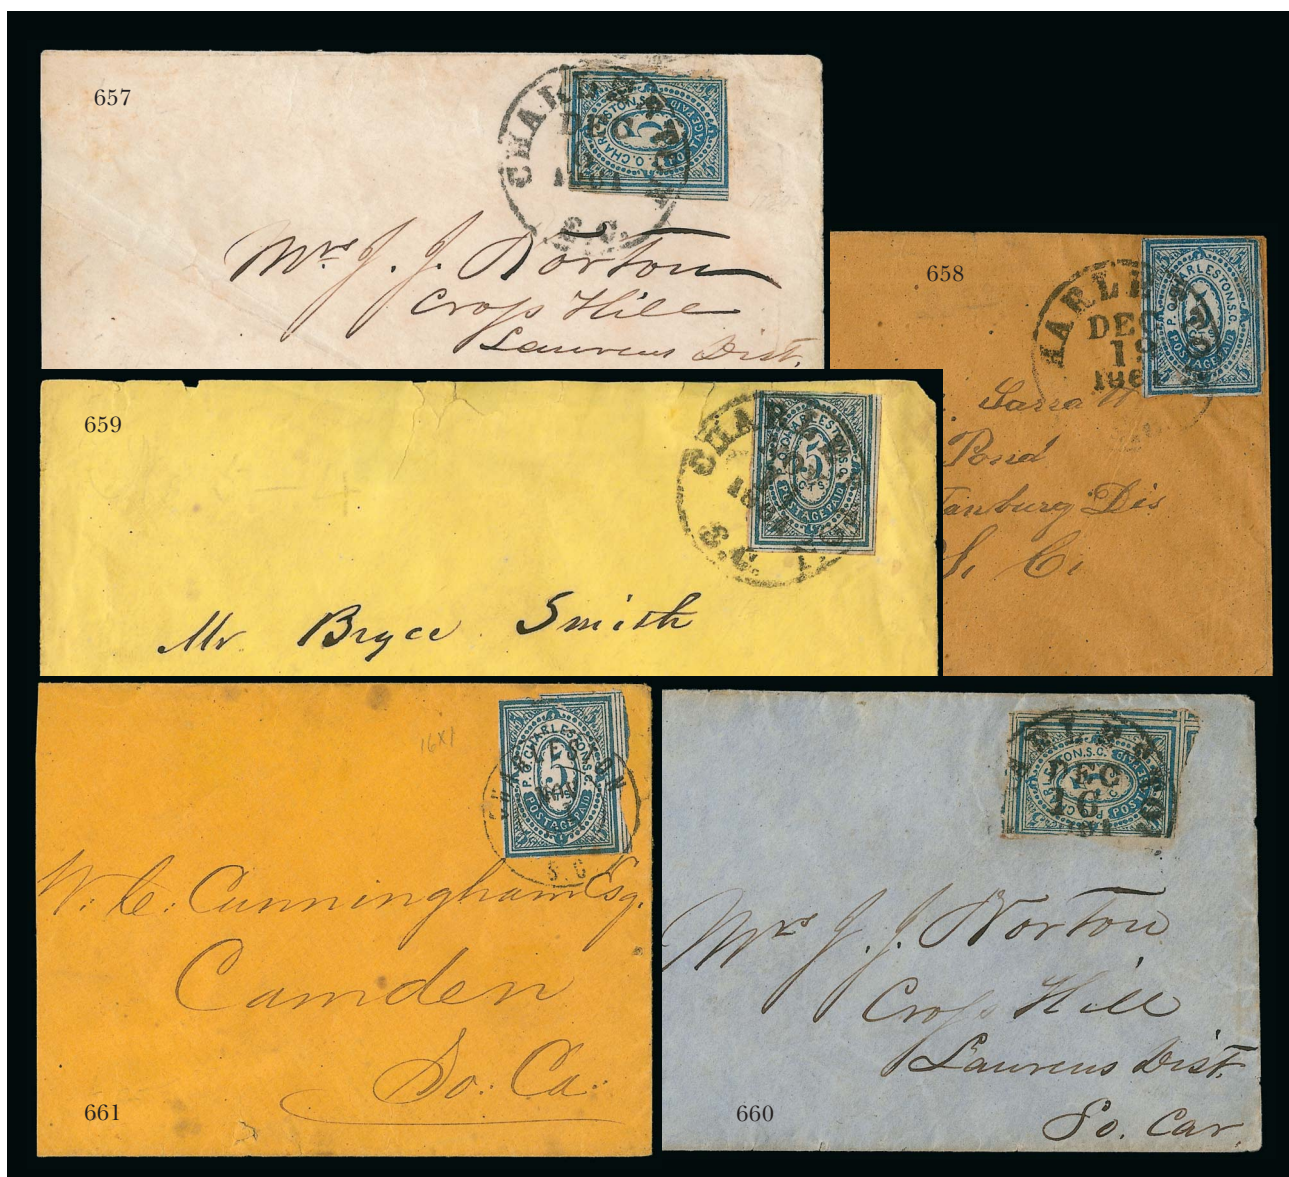 657
CHARLESTON
DEC
1861
S.C.
P.O. CHARLESTON, S.C.
5
POSTAGE PAID
Mrs J. J. Norton
Cross Hill
Laurens Dist.
658
HARLE
DEC
19
1861
P. O. CHARLESTON, S.C.
POSTAGE PAID
Pond
tanburg Dis
S. C.
659
CHARLESTON
S.C.
P.O. CHARLESTON, S.C.
5
CTS
POSTAGE PAID
Mr Bryce Smith
16X1
CHARLESTON
NOV
S.C
P. O. CHARLESTON, S.C.
5
POSTAGE PAID
W. C. Cunningham Esq.
Camden
So. Ca.
661
DEC
16
CHARLESTON, S.C.
POSTAGE PAID
Mrs J. J. Norton
Cross Hill
Laurens Dist.
So. Car.
660